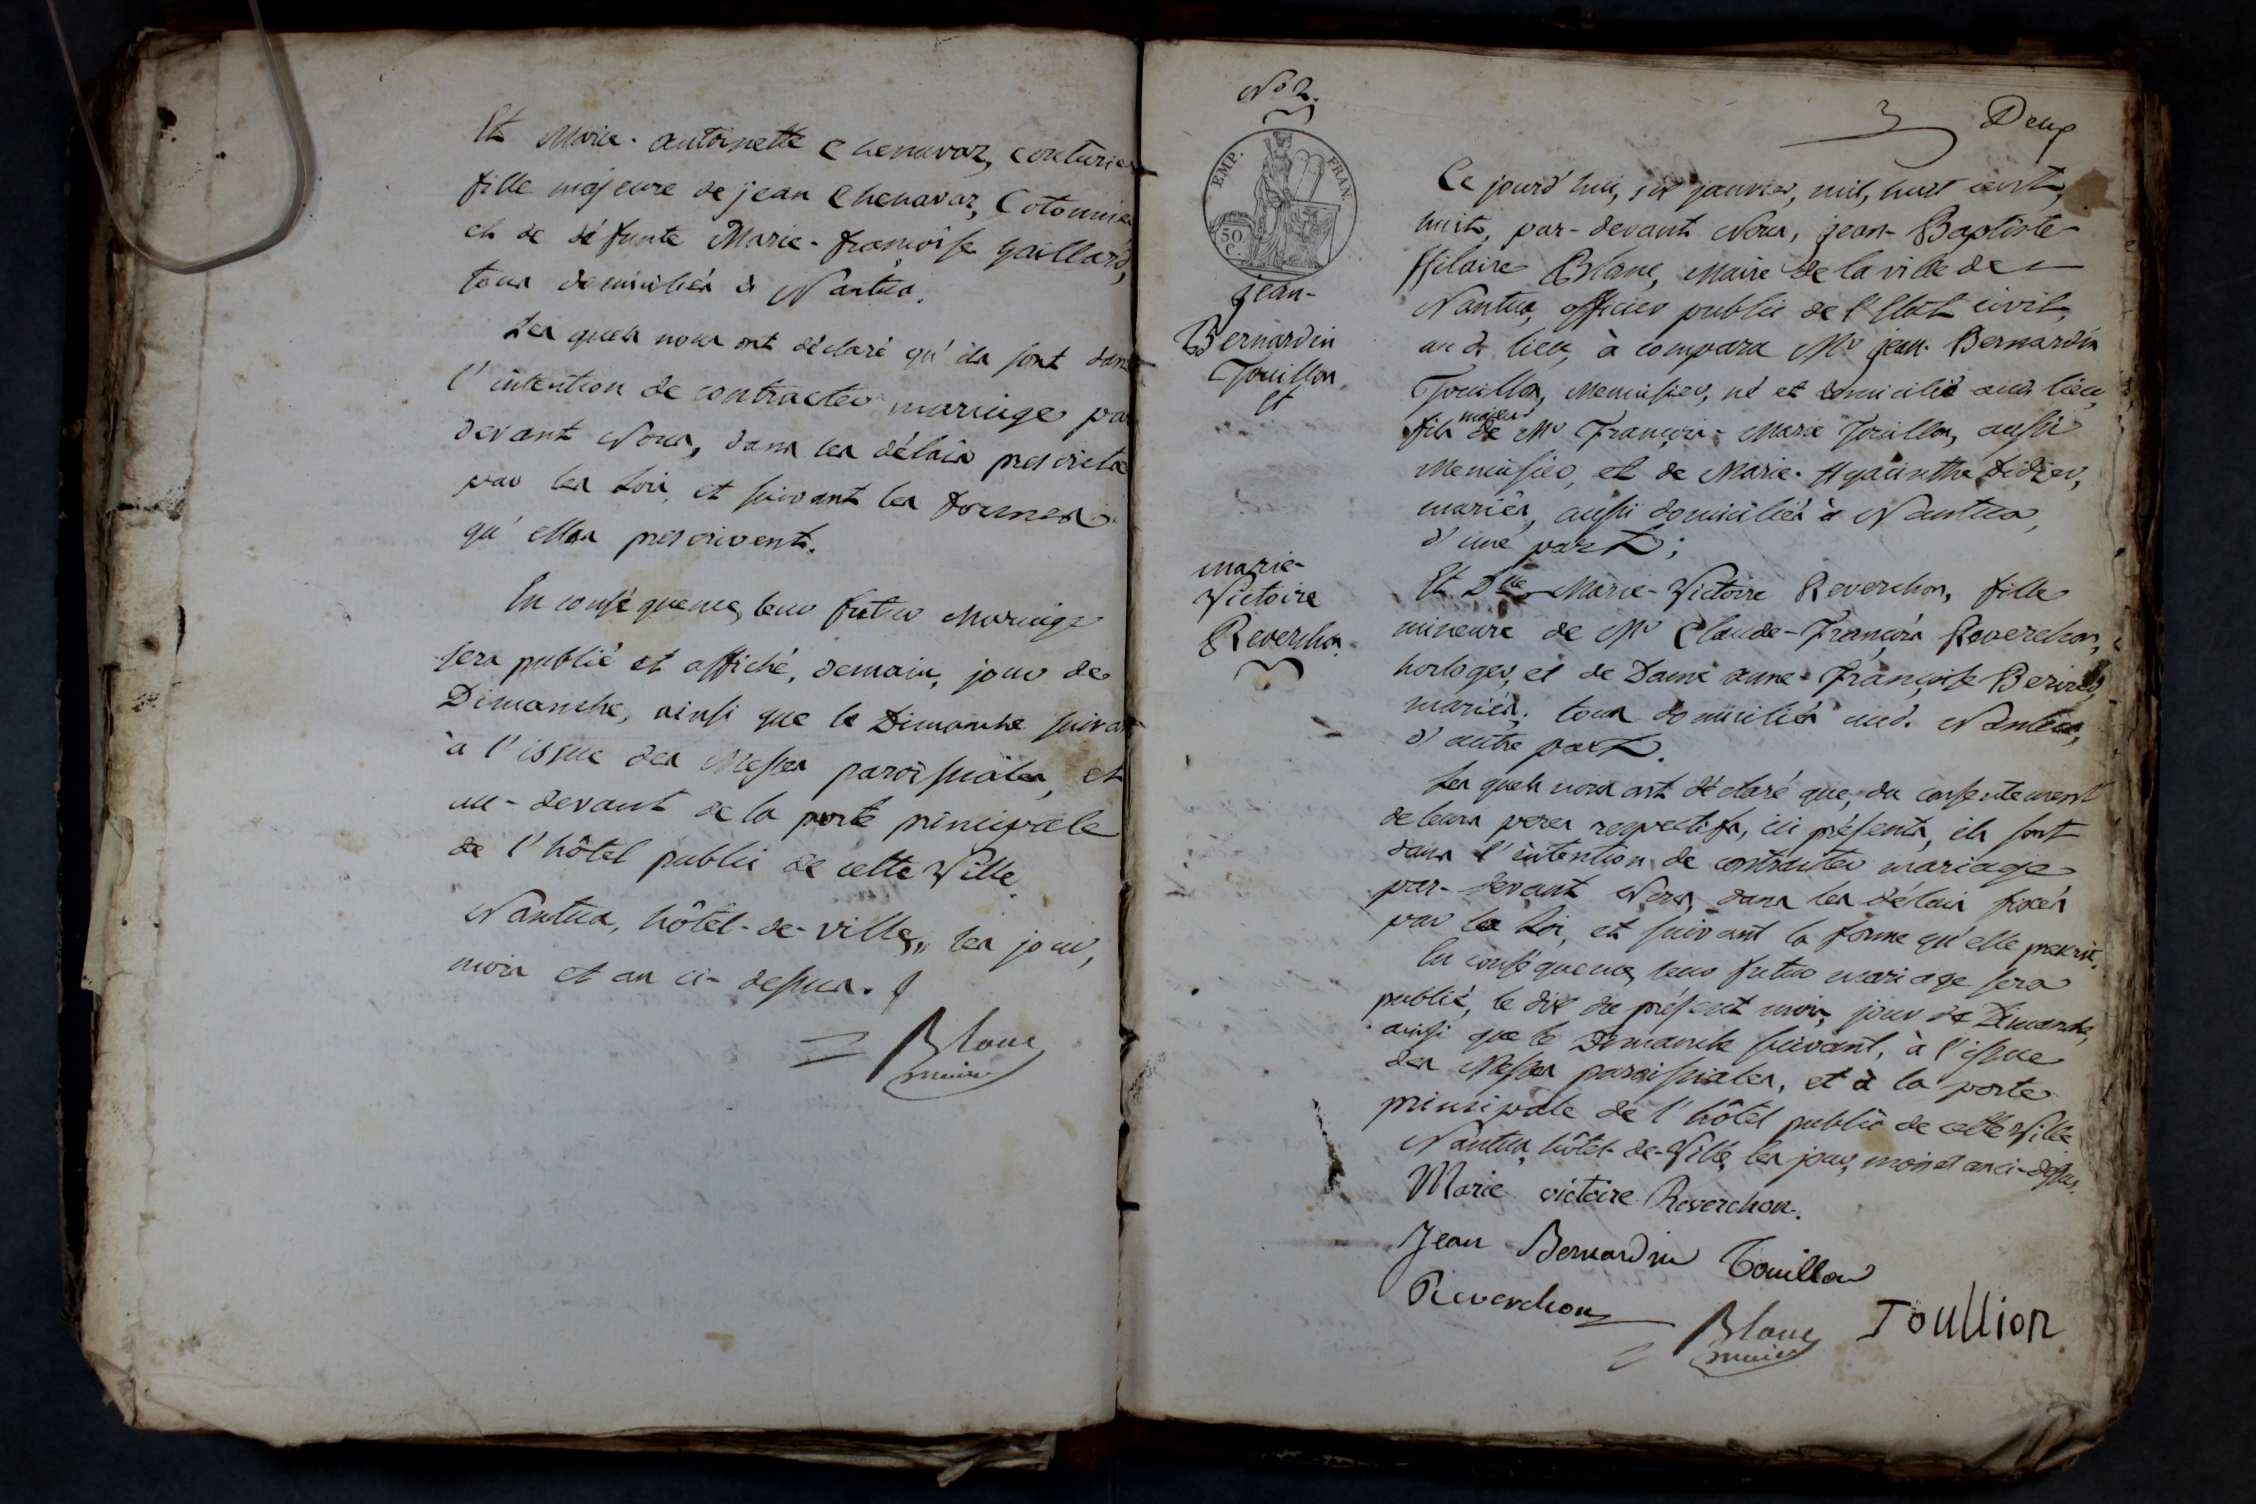 Et Marie-antoinette Chenavaz, couturie
fille majeure de jean Chenavaz, Cotonnie
et de défunte Marie-françoise Gaillard,
tous domiciliés à Nantua.
Les quels nous ont déclaré qu'ils sont dans
l'intention de contracter mariage pa
devant Nous, dans les délais prescrits
par les Lois, et suivant les formes
qu'elles prescrivent.
En conséquence, leur futur Mariage
sera publié et affiché, demain, jour de
Dimanche, ainsi que le Dimanche suivan
à l'issue des Messes paroissiales, et
au-devant de la porte principale
de l'hôtel public de cette Ville.
Nantua, hôtel-de-ville, les jour,
mois et an ci-dessus.
Blanc
maire
No 2.
EMP. FRAN.
50
C.
jean-
Bernardin
Touillon
Et
marie-
Victoire
Reverchon
Deux
Ce jourd'hui, six janvier, mil, huit cent,
huit, par-devant Nous, jean-Baptiste-
Hilaire Blanc, Maire de la ville de
Nantua, officier public de l'Etat civil,
au d. lieu, à comparu Mr jean-Bernardin
Touillon, Menuisier, né et domicilié aud. lieu,
fils majeur de Mr François-Marie Touillon, aussi
Menuisier, et de Marie-Hyacinthe Didier,
mariés, aussi domiciliés à Nantua,
d'une part;
Et Dlle Marie-Victoire Reverchon, fille
mineure de Mr Claude-François Reverchon,
horloger, et de Dame anne-Françoise
mariés, tous domiciliés aud. Nantua,
d'autre part.
Les quels nous ont déclaré que, du consentement
de leurs peres respectifs, ici présents, ils sont
dans l'intention de contracter mariage
par-devant Nous, dans les délais fixés
par la Loi, et suivant la forme qu'elle prescrit.
En conséquence, leur futur mariage sera
publié, le dix du présent mois, jour de Dimanche,
ainsi que le Dimanche suivant, à l'issue
des Messes paroissiales, et à la porte
principale de l'hôtel public de cette Ville
Nantua, hôtel-de-Ville, les jour, mois et an ci-dessus.
Marie victoire Reverchon.
Jean Bernardin Touillon
Reverchon
Blanc
maire
Toullion